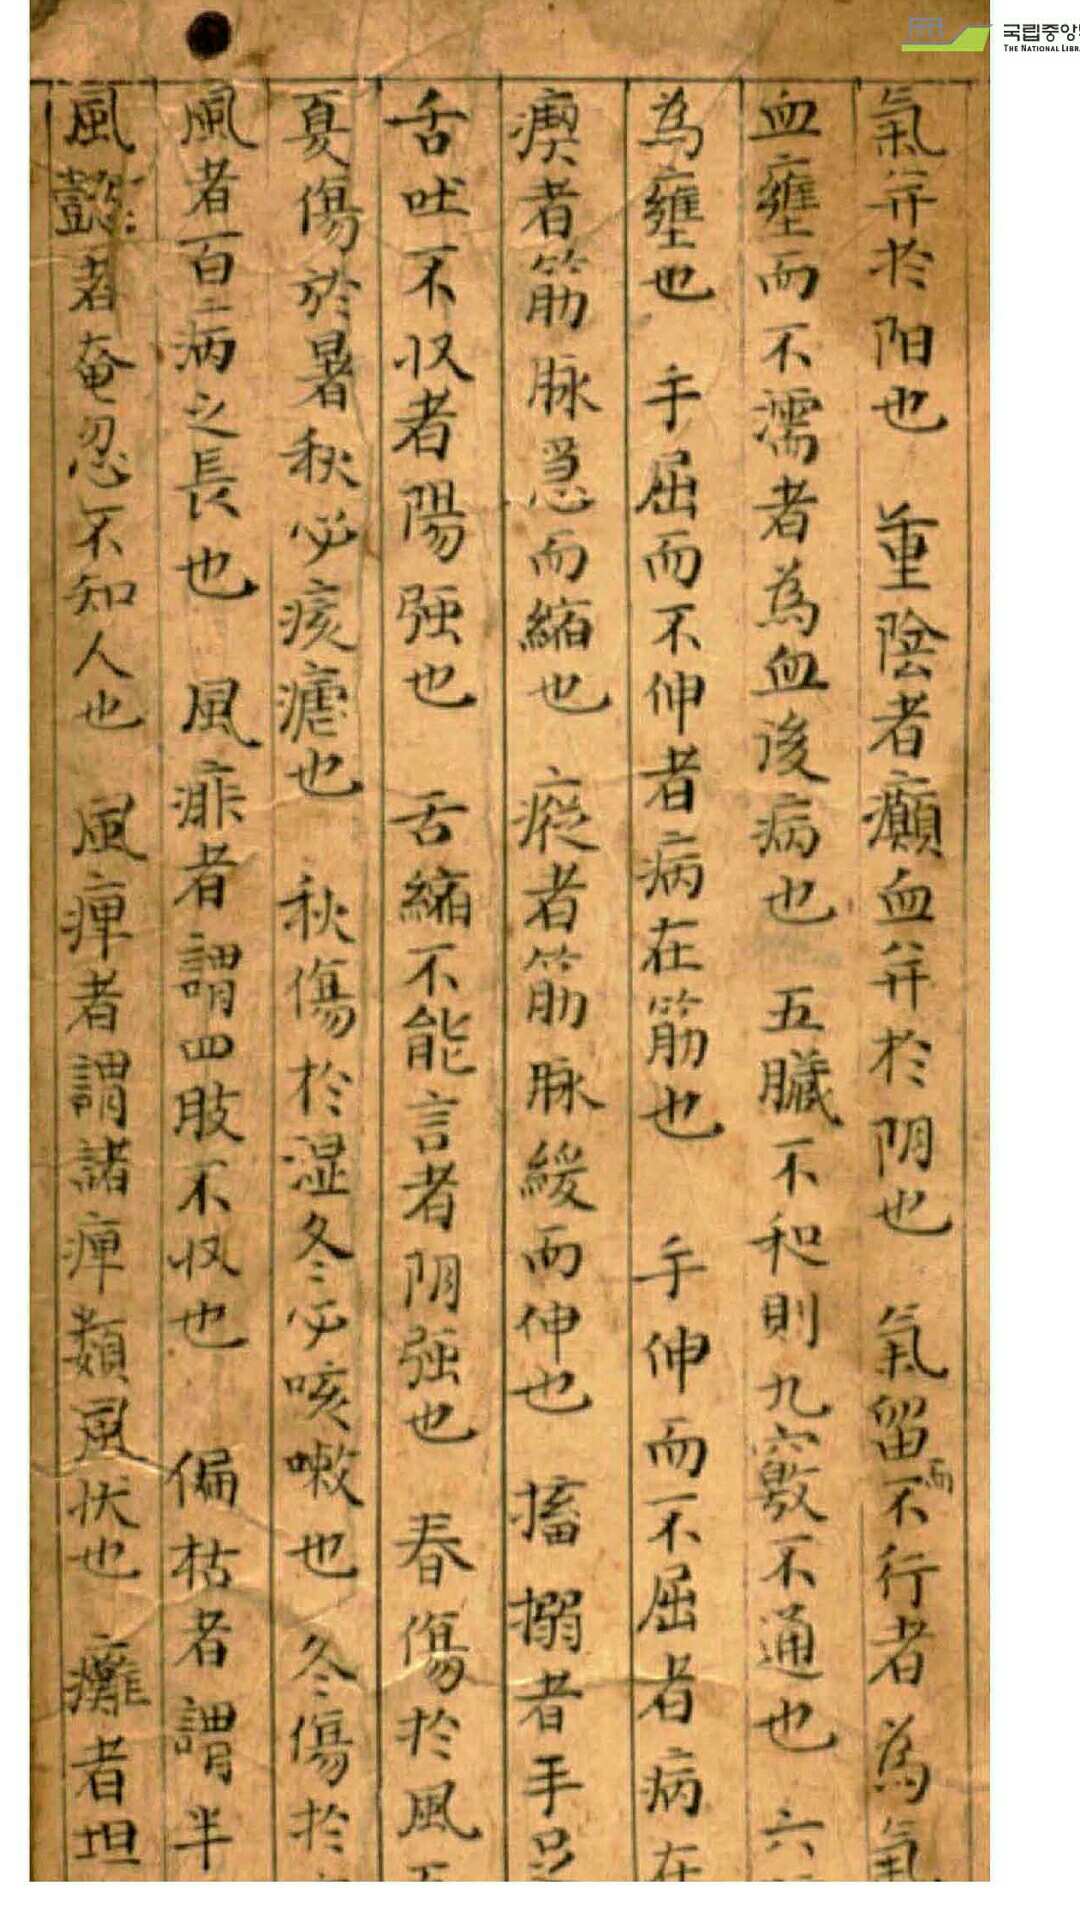 氣并於阳也 重陰者癲血并於阴也 氣留而不行者為氣
血壅而不濡者為血後病也 五臟不和則九竅不通也 六
為壅也 手屈而不伸者病在筋也 手伸而不屈者病在
瘈者筋脉急而縮也 瘲者筋脉緩而伸也 搐搦者手足
舌吐不収者陽强也 舌縮不能言者阴强也 春傷於風
夏傷於暑秋必痎瘧也 秋傷於湿冬必咳嗽也 冬傷於
風者百病之長也 風痱者謂四肢不収也 偏枯者謂半
風懿者奄忽不知人也 風痺者謂諸痺類風状也 癱者坦
국립중앙
THE NATIONAL LIBRA